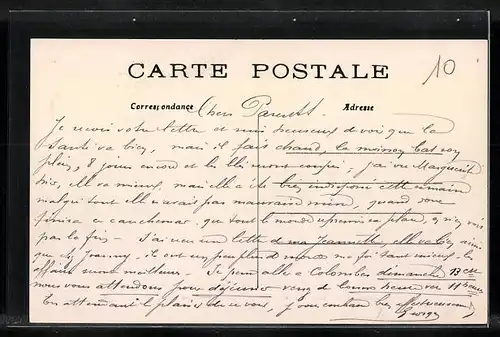 10
CARTE POSTALE
Correspondance Chers Parents. Adresse
Je reçois votre lettre et suis heureux de voir que la
santé va bien, mais il fait chaud, la moisson bat son
plein, 8 jours encore et les blés seront coupés, j'ai vu Marguerite
hier, elle va mieux, mais elle a été bien indisposée cette semaine
malgré tout elle n'avait pas mauvaise mine, quand donc
finira ce cauchemar, que tout le monde reprenne sa place, on n'en voit
pas la fin - J'ai reçu une lettre de ma Jeannette, elle va bien ainsi
que
affaires sont meilleures - Je pense aller à Colombes dimanche 13 ct
nous vous attendons pour déjeuner venez de bonne heure vers 11 heures
En attendant le plaisir de vous voir, je vous embrasse bien affectueusement